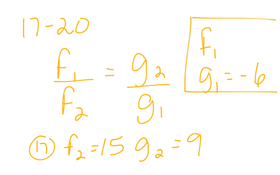 17-20
f₁/f₂ = g₂/g₁
f₁
g₁ = -6
⑰ f₂ = 15 g₂ = 9